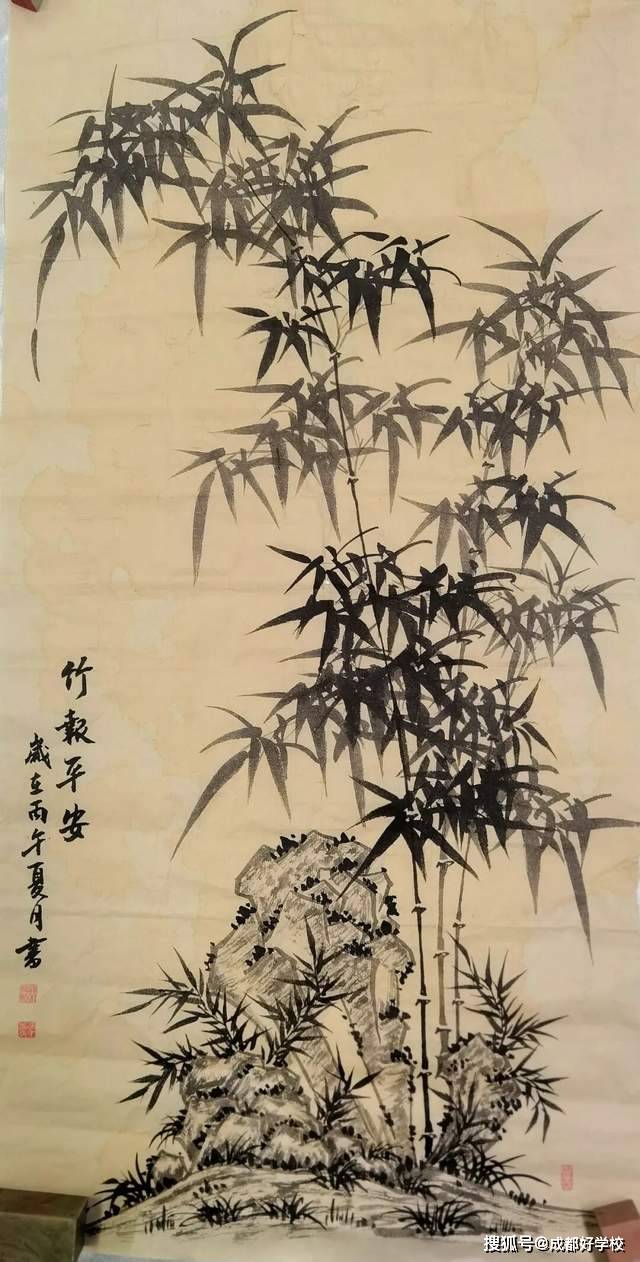 竹報平安
歲在丙午夏月書
搜狐号@成都好学校